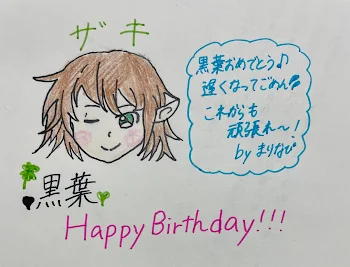 ザキ
黒葉おめでとう♪
遅くなってごめん💦
これからも
頑張れ〜!
by まりなぴ
黒葉
Happy Birthday!!!